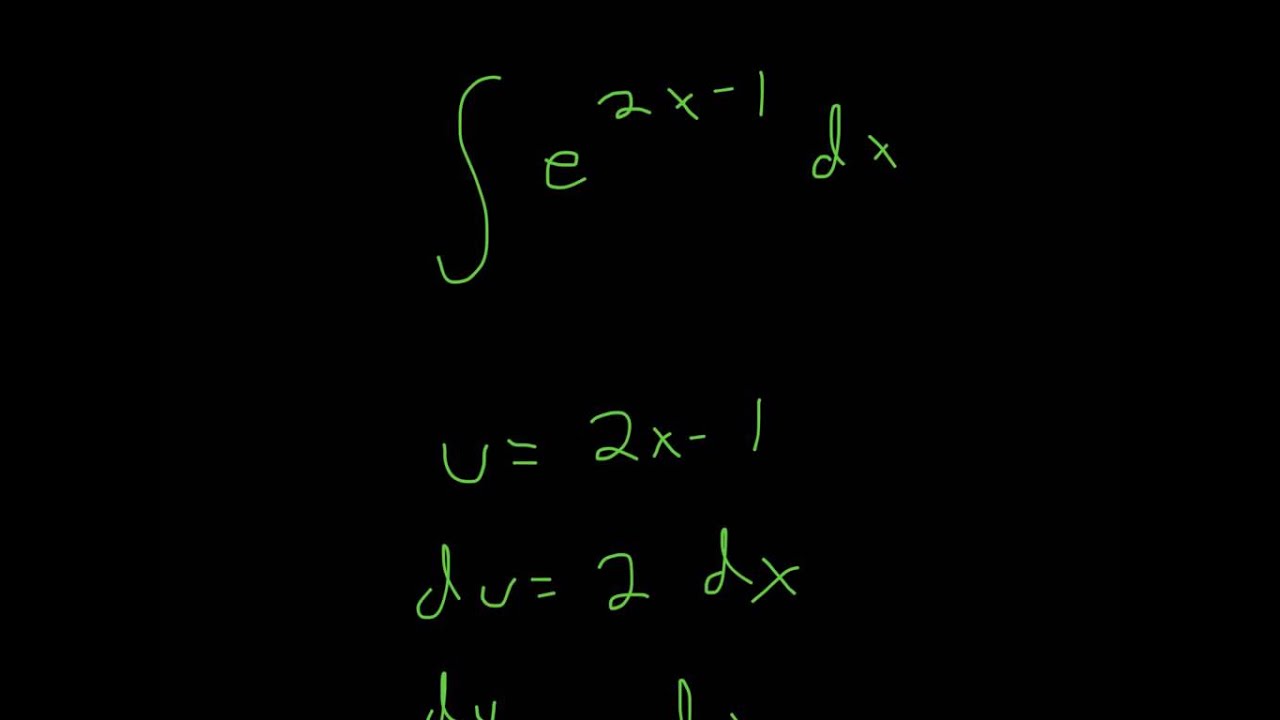 ∫ e^{2x-1} dx
u = 2x - 1
du = 2 dx